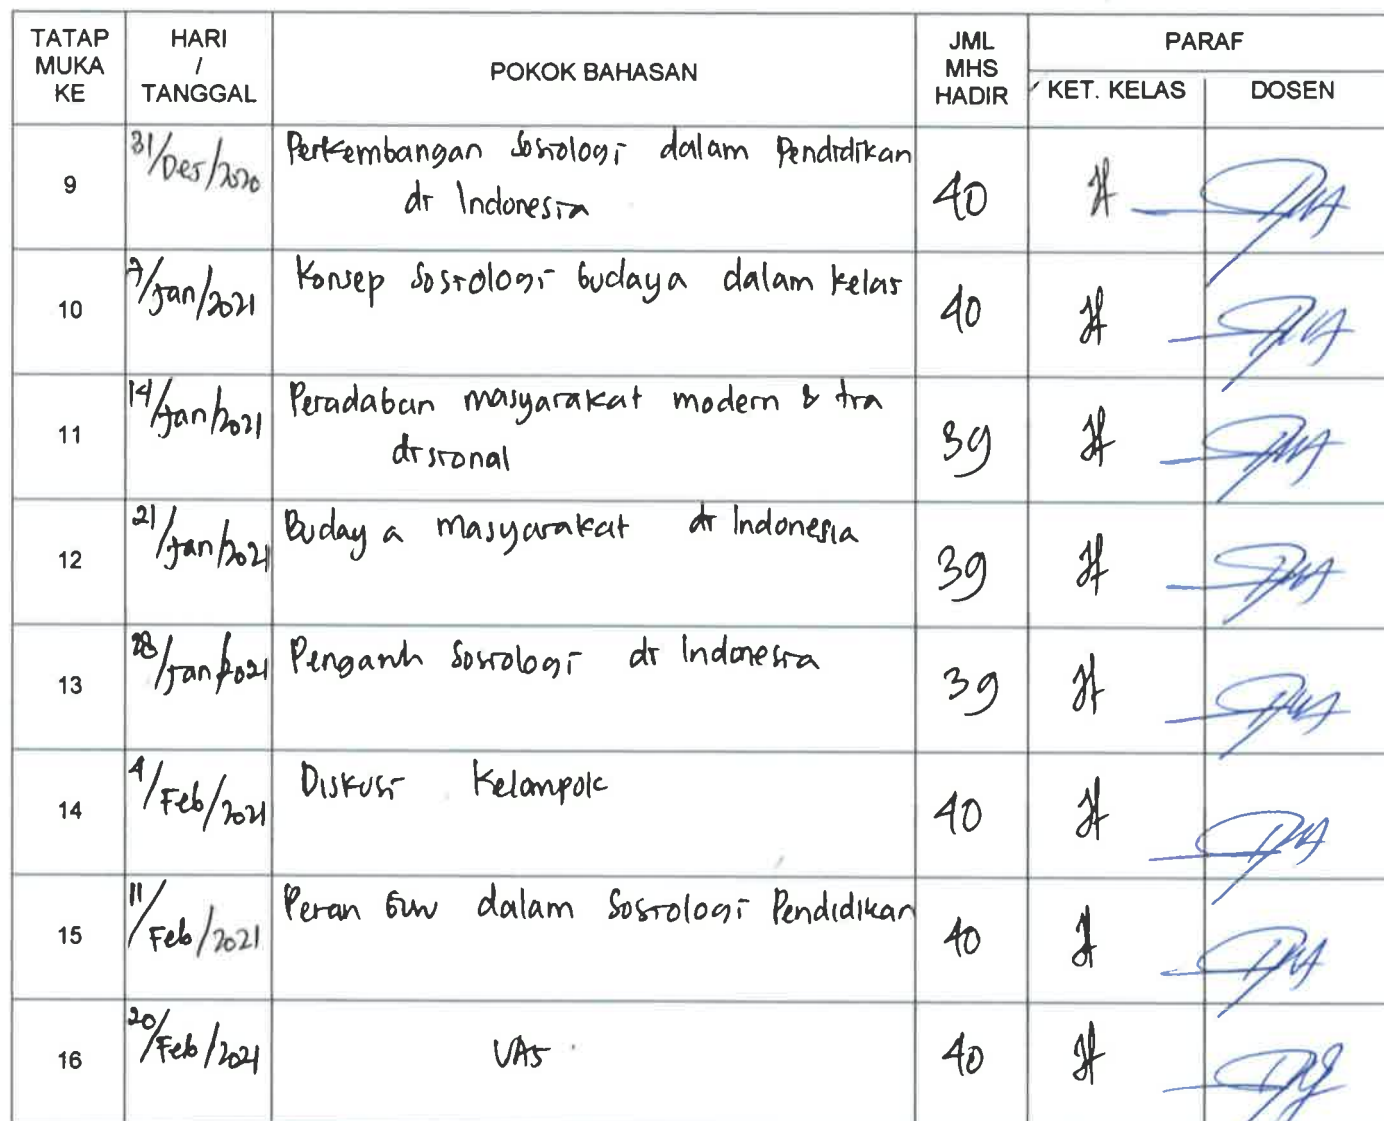 TATAP MUKA KE HARI / TANGGAL POKOK BAHASAN JML MHS HADIR PARAF
KET. KELAS DOSEN
9 31/Des/2020 Perkembangan Sosiologi dalam Pendidikan 40
di Indonesia
10 7/Jan/2021 Konsep Sosiologi budaya dalam kelas 40
11 14/Jan/2021 Peradaban masyarakat modern & tra 39
disional
12 21/Jan/2021 Budaya masyarakat di Indonesia 39
13 28/Jan/2021 Pengaruh Sosiologi di Indonesia 39
14 4/Feb/2021 Diskusi Kelompok 40
15 11/Feb/2021 Peran Guru dalam Sosiologi Pendidikan 40
16 20/Feb/2021 UAS 40